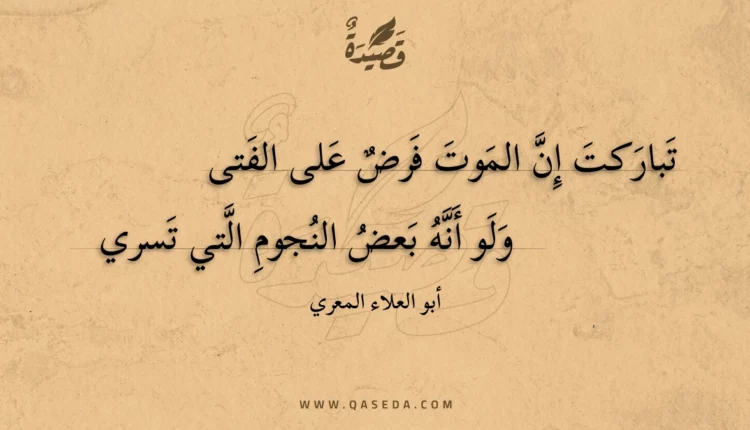 قَصِيدَةٌ
تَبارَكتَ إِنَّ المَوتَ فَرضٌ عَلى الفَتى
وَلَو أَنَّهُ بَعضُ النُجومِ الَّتي تَسري
أبو العلاء المعري
WWW.QASEDA.COM